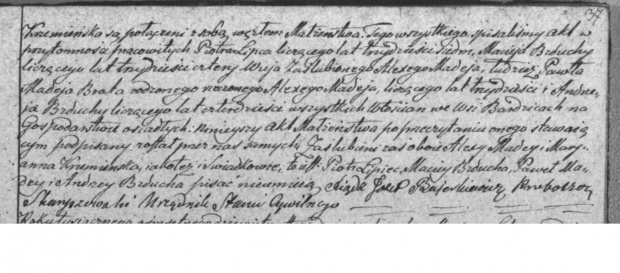 37
Krzemińska są połączeni z sobą węzłem Małżeństwa. Tego wszystkiego spisaliśmy Akt w
przytomności pracowitych Piotra Lipca liczącego lat trzydzieści siedm, Macieja Brduchy
liczącego lat trzydzieści cztery Wuja Zaślubionego Alexego Madeja, tudzież Pawła
Madeja Brata rodzonego Alexego Madeja, liczącego lat trzydzieści i Andrze
ja Brduchy liczącego lat czterdzieści wszystkich Włościan we Wsi Bardzicach na
Gospodarstwie osiadłych: Ninieyszy Akt Małżeństwa po przeczytaniu onego stawaią
cym podpisany został przez nas samych, Zaślubieni zaś oboie Alexy Madey i Mary
anna Krzemińska, iakoteż i Świadkowie, to iest Piotr Lipiec, Maciey Brducha, Paweł Ma
dey i Andrzey Brducha pisać nieumieią Xiądz Józef Proboszcz
Skaryszewski Urzędnik Stanu Cywilnego
Roku tysiącznego